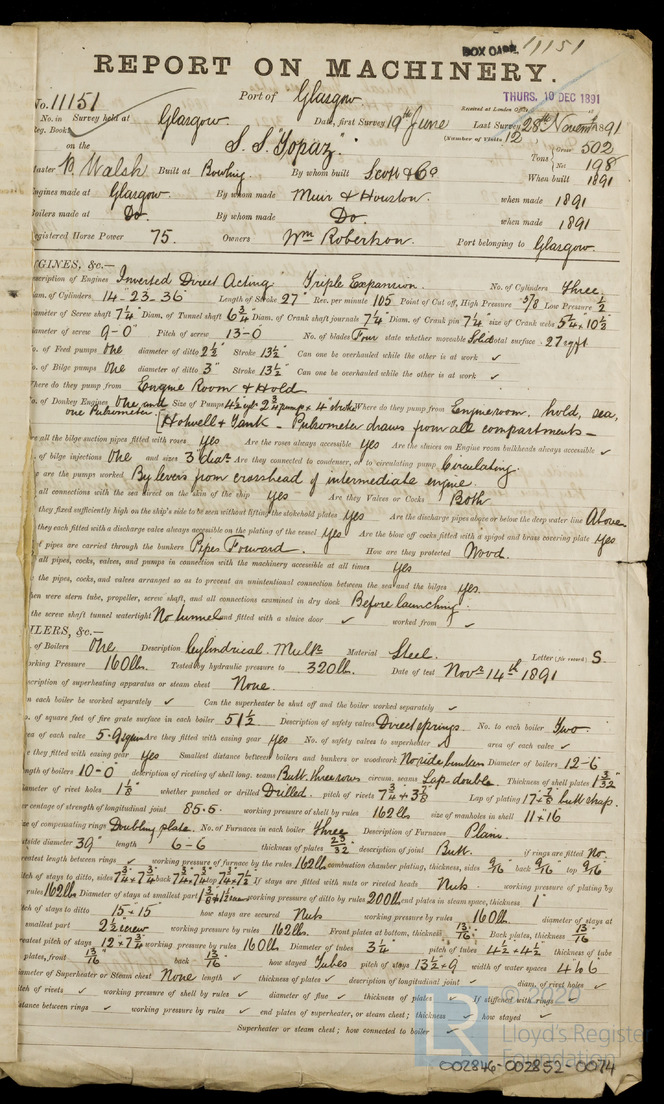 BOX 11151
REPORT ON MACHINERY.
No. 11151 Port of Glasgow THURS. 10 DEC 1891
Received at London Office
No. in Survey held at Glasgow Date, first Survey 19th June Last Survey 28th Novemr 1891
Reg. Book. (Number of Visits 12
on the S. S. "Topaz." Tons Gross 502
Net 198
Master B Walsh Built at Bowling By whom built Scott & Co When built 1891
Engines made at Glasgow. By whom made Muir & Houston. when made 1891
Boilers made at Do. By whom made Do. when made 1891
Registered Horse Power 75. Owners Wm Robertson. Port belonging to Glasgow.
ENGINES, &c.—
Description of Engines Inverted Direct Acting Triple Expansion. No. of Cylinders Three.
Diam. of Cylinders 14"-23"-36" Length of Stroke 27" Rev. per minute 105 Point of Cut off, High Pressure 5/8 Low Pressure 1/2
Diameter of Screw shaft 7 1/4 Diam. of Tunnel shaft 6 3/4 Diam. of Crank shaft journals 7 1/4 Diam. of Crank pin 7 1/4 size of Crank webs 5 1/4 x 10 1/2
Diameter of screw 9-0" Pitch of screw 13-0 No. of blades Four state whether moveable Solid total surface 27 sq ft
No. of Feed pumps One diameter of ditto 2 1/2" Stroke 13 1/2 Can one be overhauled while the other is at work ✓
No. of Bilge pumps One diameter of ditto 3" Stroke 13 1/2 Can one be overhauled while the other is at work ✓
Where do they pump from Engine Room & Hold
No. of Donkey Engines One and one Pulsometer. Size of Pumps 2 3/4 pump x 4" stroke Where do they pump from Engineroom, hold, sea,
[Hotwell & Tank – Pulsometer draws from all compartments –
Are all the bilge suction pipes fitted with roses yes Are the roses always accessible yes Are the sluices on Engine room bulkheads always accessible ✓
No. of bilge injections One and sizes 3" diar. Are they connected to condenser, or to circulating pump Circulating.
How are the pumps worked By levers from crosshead of intermediate engine.
Are all connections with the sea direct on the skin of the ship yes Are they Valves or Cocks Both
Are they fixed sufficiently high on the ship's side to be seen without lifting the stokehold plates yes Are the discharge pipes above or below the deep water line Above
Are they each fitted with a discharge valve always accessible on the plating of the vessel yes Are the blow off cocks fitted with a spigot and brass covering plate yes
What pipes are carried through the bunkers Pipes Forward. How are they protected Wood.
Are all pipes, cocks, valves, and pumps in connection with the machinery accessible at all times yes
Are the pipes, cocks, and valves arranged so as to prevent an unintentional connection between the sea and the bilges yes.
When were stern tube, propeller, screw shaft, and all connections examined in dry dock Before launching.
Is the screw shaft tunnel watertight No tunnel and fitted with a sluice door ✓ worked from ✓
BOILERS, &c.—
No. of Boilers One. Description Cylindrical. Mult. Material Steel. Letter (for record) S.
Working Pressure 160 lb. Tested by hydraulic pressure to 320 lb. Date of test Novr 14th 1891
Description of superheating apparatus or steam chest None.
Can each boiler be worked separately ✓ Can the superheater be shut off and the boiler worked separately ✓
No. of square feet of fire grate surface in each boiler 51 1/2 Description of safety valves Direct springs No. to each boiler Two.
Area of each valve Are they fitted with easing gear yes No. of safety valves to superheater area of each valve ✓
Are they fitted with easing gear yes Smallest distance between boilers and bunkers or woodwork No side bunkers Diameter of boilers 12-6"
Length of boilers 10-0" description of riveting of shell long. seams Butt three rows circum. seams Lap double. Thickness of shell plates 1 3/32"
Diameter of rivet holes 1 1/8 whether punched or drilled Drilled. pitch of rivets 7 3/4 + 3 7/8 Lap of plating 17 x 7/8 butt strap.
Per centage of strength of longitudinal joint 85.5. working pressure of shell by rules 162 lb size of manholes in shell 11 x 16
Size of compensating rings Doubling plate. No. of Furnaces in each boiler Three Description of Furnaces Plain.
Outside diameter 39" length 6-6 thickness of plates 23/32 description of joint Butt. if rings are fitted No.
Greatest length between rings ✓ working pressure of furnace by the rules 162 lb combustion chamber plating, thickness, sides 9/16 back 9/16 top 9/16
Pitch of stays to ditto, sides 7 3/4 x 7 3/4 back 7 3/4 x 7 3/4 top 7 3/4 x 7 1/2 If stays are fitted with nuts or riveted heads Nuts. working pressure of plating by
rules 162 lb Diameter of stays at smallest part working pressure of ditto by rules 200 lb end plates in steam space, thickness 1"
Pitch of stays to ditto 15 x 15" how stays are secured Nuts working pressure by rules 160 lb. diameter of stays at
smallest part 2 1/2 screw working pressure by rules 162 lb. Front plates at bottom, thickness 13/16 Back plates, thickness 13/16
Greatest pitch of stays 12 x 7 3/4 working pressure by rules 160 lb Diameter of tubes 3 1/4" pitch of tubes 4 1/2 x 4 1/2 thickness of tube
plates, front 13/16 back 13/16 how stayed Tubes pitch of stays 13 1/2 x 9 width of water spaces 4 to 6
Diameter of Superheater or Steam chest None length ✓ thickness of plates ✓ description of longitudinal joint ✓ diam. of rivet holes ✓
Pitch of rivets ✓ working pressure of shell by rules ✓ diameter of flue ✓ thickness of plates ✓ If stiffened with rings ✓
Distance between rings ✓ working pressure by rules ✓ end plates of superheater, or steam chest; thickness ✓ how stayed ✓
Superheater or steam chest; how connected to boiler ✓
LR © 2020
Lloyd's Register
Foundation
002846-002852-0074